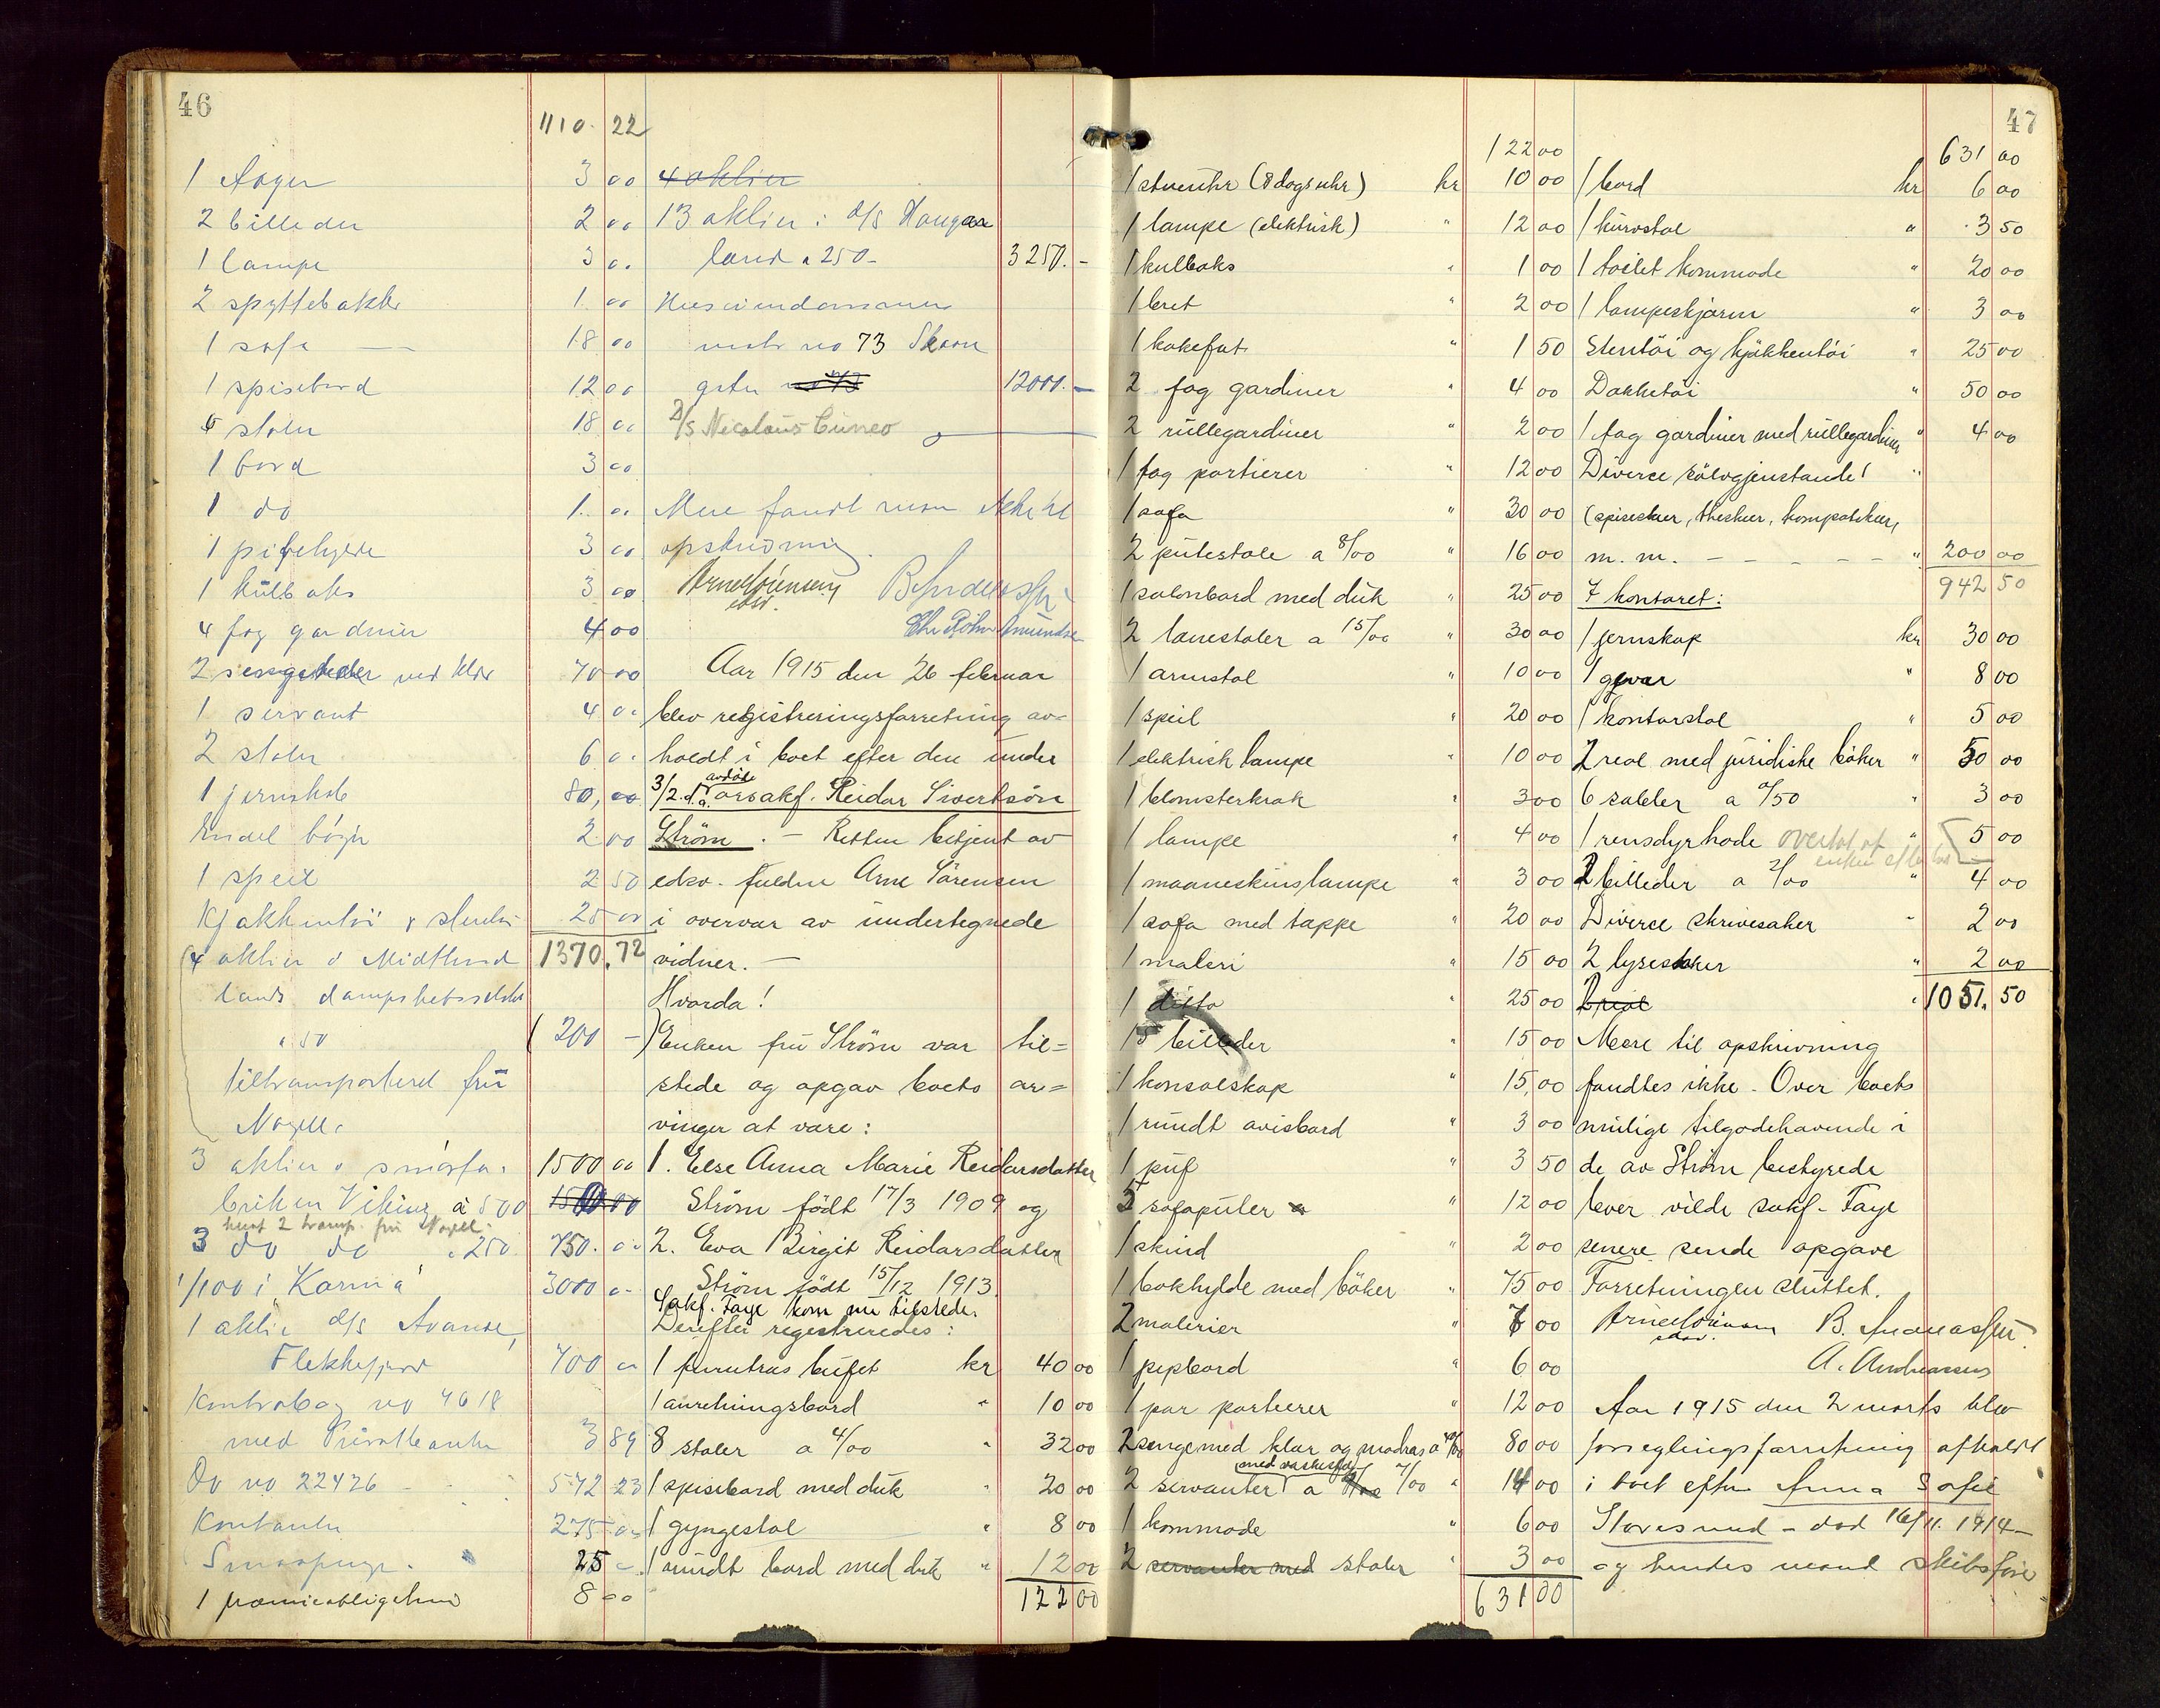 46
1110. 22
1 3 00
2 billeder 2 00
1 lampe 3 0.
2 spyttebakker 1. 00
1 sofa 18 00
1 spisebord 12 00
6 stoler 18 00
1 bord 3 00
1 do 1. 0.
1 pipehylde 3 00
1 kulboks 3 00
4 fag gardiner 4 00
2 sengesteder med klær 70 00
1 servant 4 0.
2 stoler 6 0.
1 jernskab 80, 00
Endel bøger 2 00
1 speil 2 50
Kjøkkentøi & stentøi 25 00
1370.72
(4 aktier i Midthord
lands dampskibsselskab
a 50 (200 -)
tiltransporteret fru
Nagell.
3 aktier i smørfa- 1500 00
briken Viking à 500 1500 00
hvoraf 2 transp. fru Nagell.
3 do do a 250 750. 0.
1/100 i "Karma" 3000 0.
1 aktie d/s Avance,
Flekkefjord 700 00
Kontrabog no 4618
med Privatbanken 3 89
Do no 22426 - 572 23
Kontanter 275 0.
Smaapenge. 25 -
1 præmieobligation 8 00
4 aktier
13 aktier i d/s Hauga
land a 250- 3250.-
Huseiendommen
matr no 73 Skaare
gaten no 73 12000.-
D/S Nicolaus Cuneo
Mere fandt man ikke til
opskrivning.
Arne Sørensen
edsv.
B. Andreassen
Chr Röhr Amundsen
Aar 1915 den 26 februar
blev registreringsforretning av-
holdt i boet efter den under
3/2. d.a. avdöde orsakf. Reidar Sivertsön
Ström. - Retten betjent av
edsv. fuldm Arne Sörensen
i overvær av undertegnede
vidner. -
Hvorda!
Enken fru Ström var til=
stede og opgav boets ar=
vinger at være:
1. Else Anna Marie Reidarsdatter
Ström födt 17/3 1909 og
2. Eva Birgit Reidarsdatter
Ström födt 15/12 1913.
Sakf. Faye kom nu tilstede.
Derefter registreredes:
1 furutræs bufet kr 40 00
1 anretningsbord " 10 00
8 stoler a 4/00 " 32 00
1 spisebord med duk " 20 00
1 gyngestol " 8 00
1 rundt bord med duk " 12 00
122 00
47
122 00
1 stueuhr (8 dagsuhr) kr 10 00
1 lampe (elektrisk) " 12 00
1 kulboks " 1 00
1 bret " 2 00
1 kakefat " 1 50
2 fag gardiner " 4 00
2 rullegardiner " 2 00
1 fag portierer " 12 00
1 sofa " 30 00
2 putestole a 8/00 " 16 00
1 salonbord med duk " 25 00
2 lænestoler a 15/00 " 30 00
1 armstol " 10 00
1 speil " 20 00
1 elektrisk lampe " 10 00
1 blomsterkrak " 3 00
1 lampe " 4 00
1 maaneskinslampe " 3 00
1 sofa med tæppe " 20 00
1 maleri " 15 00
1 ditto " 25 00
15 billeder " 15 00
1 konsolskap " 15,00
1 rundt avisbord " 3 00
1 puf " 3 50
5 sofaputer " 12 00
1 skind " 2 00
1 bokhylde med böker " 75 00
2 malerier " 7 00
1 pipbord " 6 00
1 par portierer " 12 00
2 senge med klær og madras a 40/00 80 00
med vaskestel
2 servanter a 7/00 " 14 00
1 kommode " 6 00
2 servanter med stoler " 3 00
631 00
631 00
1 bord kr 6 00
1 kurvstol " 3 50
1 toilet kommode " 20 00
1 lampeskjærm " 3 00
Stentöi og kjökkentöi " 25 00
Dækketöi " 50 00
1 fag gardiner med rullegardiner " 4 00
Diverse sölvgjenstande! "
(spiseskeer, theskeer, kompotskeer,
m. m. - - - - - " 200 00
942 50
I kontoret:
1 jernskap kr 30 00
1 gevær " 8 00
1 kontorstol " 5 00
2 reol med juridiske böker " 50 00
6 sabler a 0/50 " 3 00
1 rensdyrhode overtat af " 5 00
enken efter
2 billeder a 2/00 " 4 00
Diverse skrivesaker " 2 00
2 lysestaker " 2 00
1 reol " 1051. 50
Mere til opskrivning
fandtes ikke. Over boets
mulige tilgodehavende i
de av Ström bestyrede
boer vilde sakf. Faye
senere sende opgave
Forretningen sluttet.
Arne Sörensen
edsv.
B. Andreassen
A. Andreassen
Aar 1915 den 2 marts blev
forseglingsforretning afholdt
i boet efter Anna Sofie
Storesund - död 16/11. 1914 -
og hendes mand skibsföre